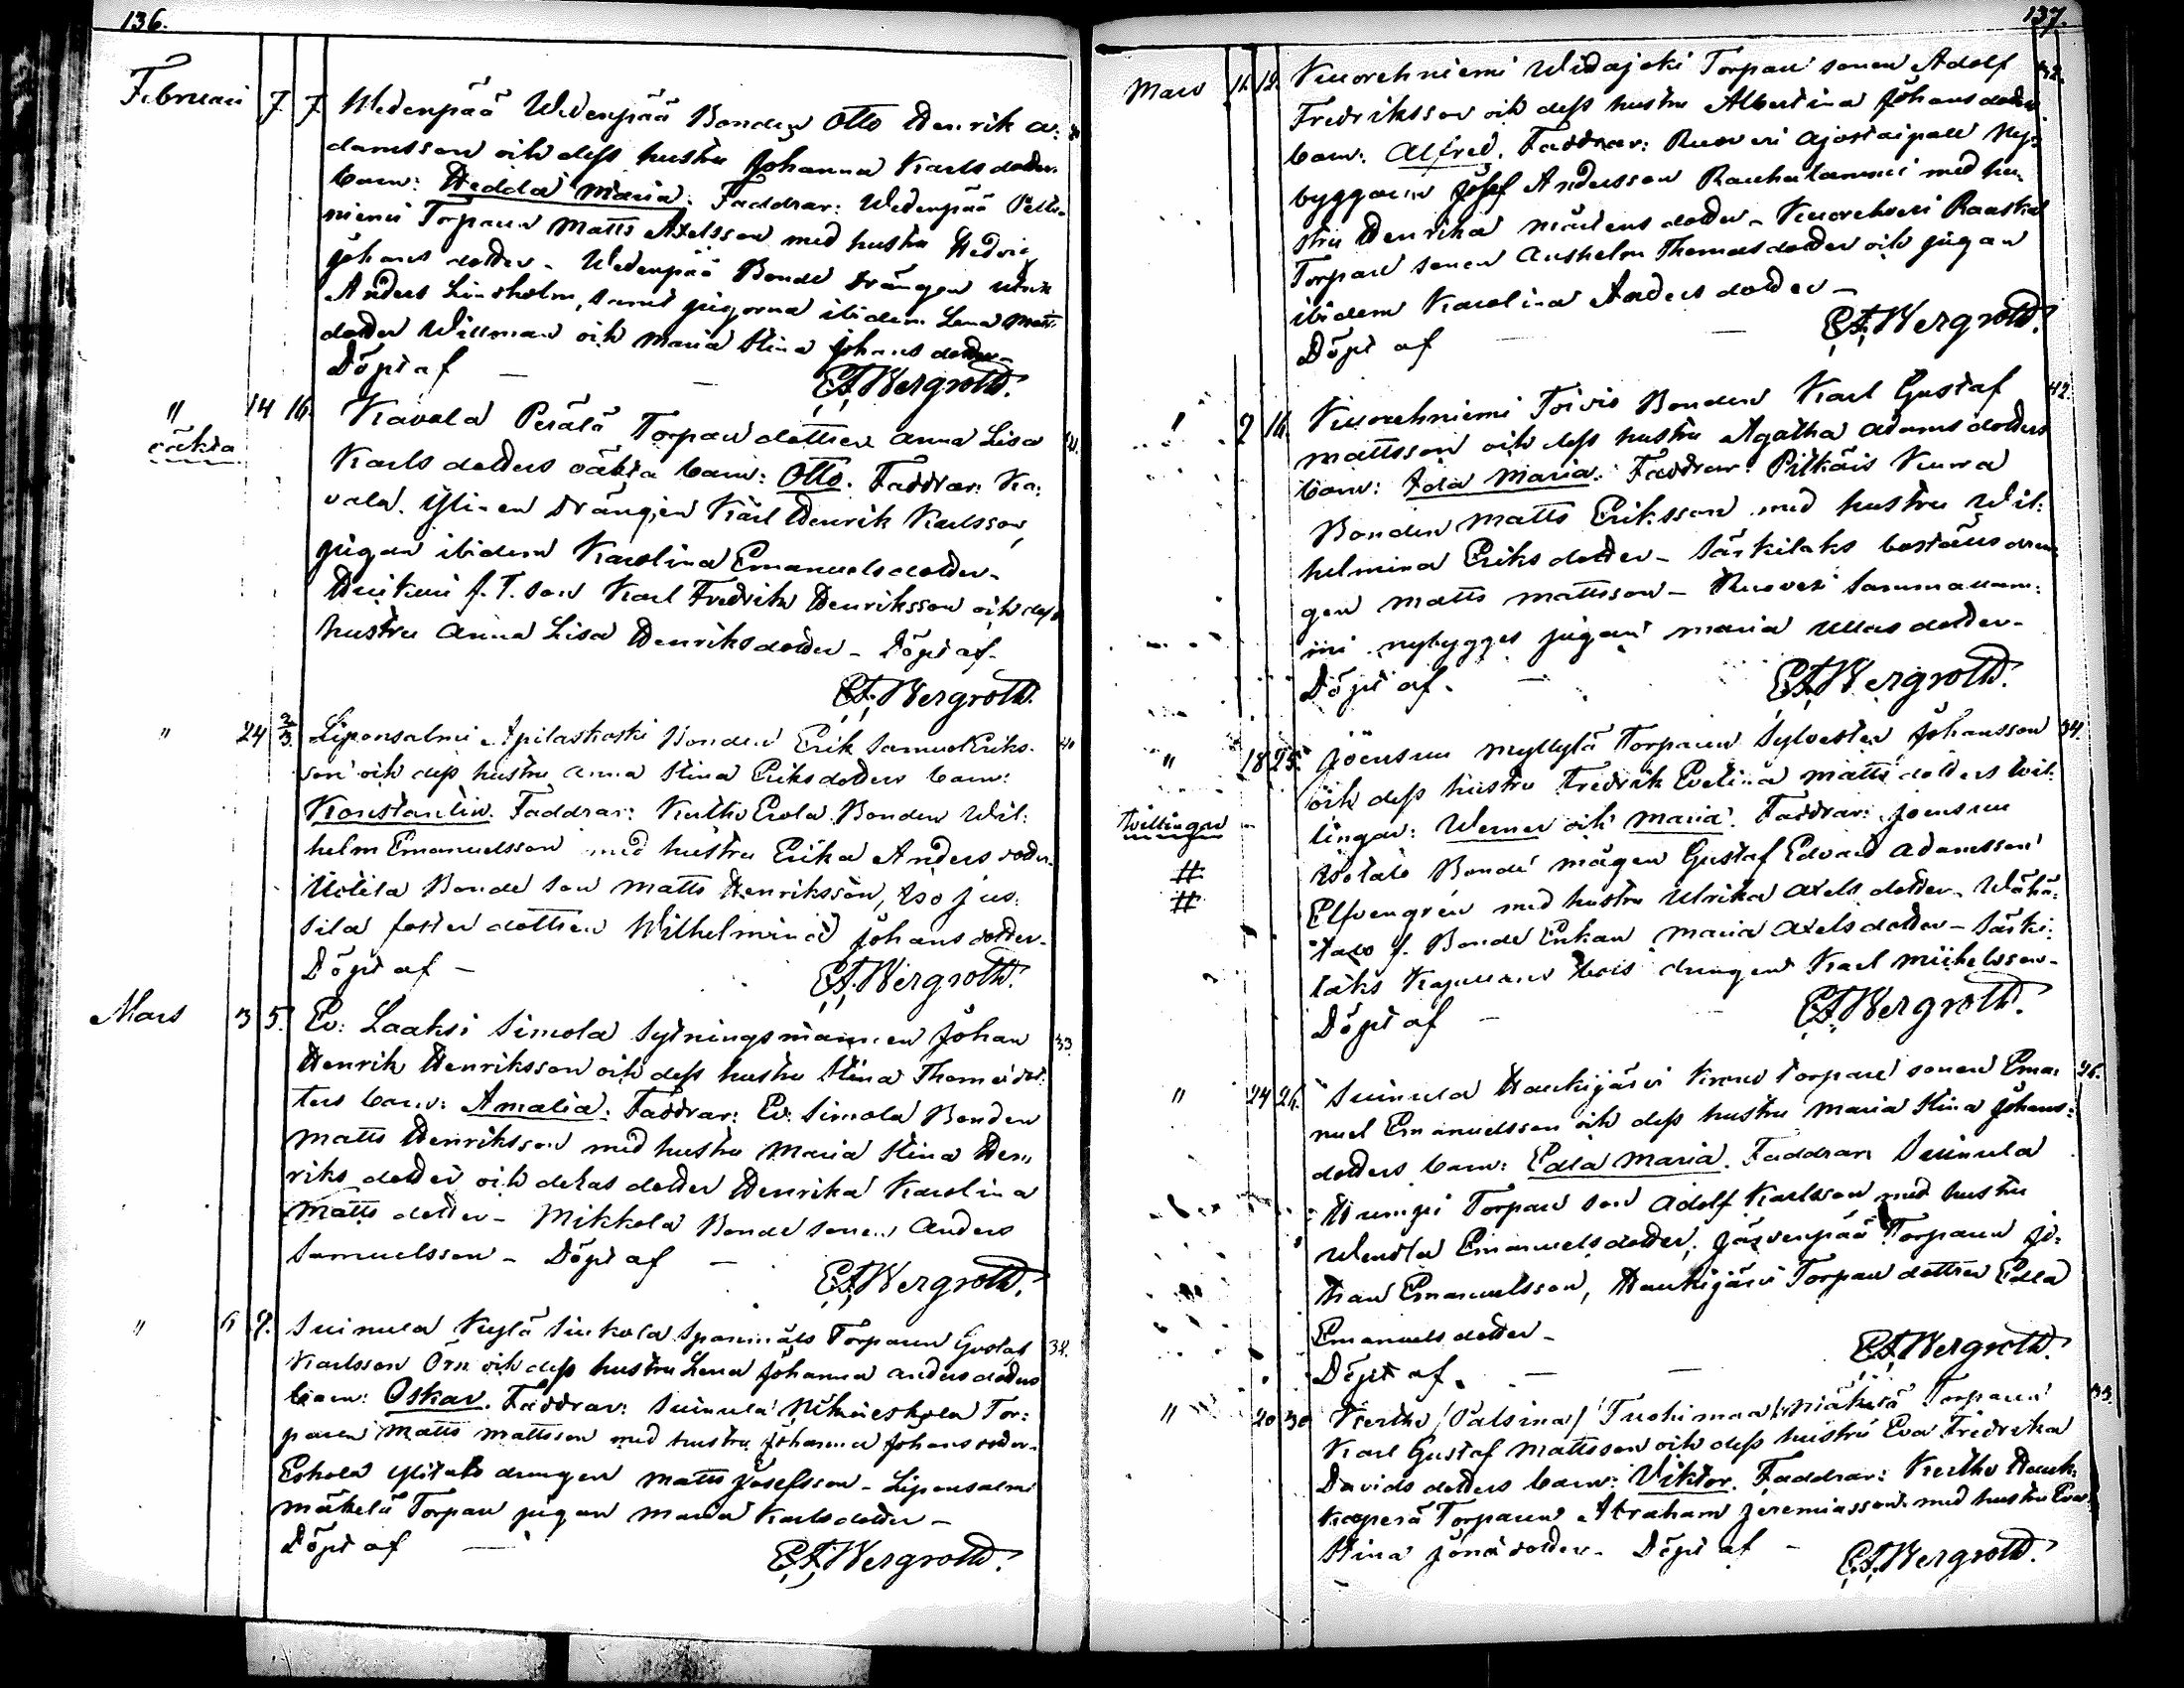 136.
Februari 7 7 Wedenpää Wedenpää Bonden Otto Henrik A:
damsson och dess hustru Johanna Karls dotters
barn: Hedda Maria. Faddrar: Wedenpää
niemi Torparen Matts Axelsson med hustru Hedvig
Johans dotter - Wedenpää Bonde drängen
Anders Lindholm, samt pigorna ibidem Lena Matts
dotter Willman och Maria Stina Johans dotter -
Döpt af - - Bergroth.
" 14 16. Kavala Perälä Torpare dottren Anna Lisa
oäkta
Karls dotters oäkta barn: Otto. Faddrar: Ka:
vala Ylinen Drängen Karl Henrik Karlsson,
pigan ibidem Karolina Emanuels dotter -
f. T. son Karl Fredrik Henriksson och dess
hustru Anna Lisa Henriks dotter - Döpt af -
Bergroth.
" 24 2/3. Liponsalmi Apilaskoski Bonden Erik Samuel Eriks- 40
son och dess hustru Anna Stina Eriks dotters barn:
Konstantin. Faddrar: Kurthi Erola Bonden Wil:
helm Emanuelsson med hustru Erika Anders dotter.
Uotila Bonde son Matts Henriksson, Iso Jus:
sila foster dottren Wilhelmina Johans dotter -
Döpt af - Bergroth.
Mars 3 5. Ev: Laaksi Simola Sytningsmannen Johan 33.
Henrik Henriksson och dess hustru Stina Thomæ dot:
ters barn: Amalia. Faddrar: Ev. Simola Bonden
Matts Henriksson med hustru Maria Stina Hen,,
riks dotter och deras dotter Henrika Karolina
Matts dotter - Mikkola Bonde sonen Anders
Samuelsson - Döpt af -
Bergroth.
" 6 9. Suinula Kylä Sinkola Spanmåls Torparen Gustaf 38.
Karlsson Örn och dess hustru Lena Johanna Anders dotters
barn: Oskar. Faddrar: Suinula Tor:
paren Matts Mattsson med hustru Johanna Johans dotter -
Eskola Ylitalo drängen Matts Josefsson - Liponsalmi
Mäkelä Torpare pigan Maria Karls dotter -
Döpt af - Bergroth.
137.
Mars 11. 12. Kuorehniemi Widajoki Torpare sonen Adolf 32.
Fredriksson och dess hustru Albertina Johans dotters
barn: Alfred. Faddrar: Ruoveri Ajostaipale Ny:
byggaren Josef Andersson Rauhalammi med hu,
stru Henrika Mårtens dotter - Kuorehveri Raaskal
Torpare sonen Anshelm Thomas dotter och pigan
ibidem Karolina Anders dotter -
Döpt af - Bergroth.
" 9 16. Kuorehniemi Toivio Bonden Karl Gustaf 42.
Mattsson och dess hustru Agatha Adams dotters
barn: Ida Maria. Faddrar: Pitkäis Kuura
Bonden Matts Eriksson med hustru Wil:
helmina Eriks dotter - Särkilaks boställs drän
gen Matts Mattsson - Ruoveri Sammallam:
mi nybygges pigan Maria Ullas dotter -
Döpt af. - Bergroth.
" 18 25. Joensuu Myllylä Torparen Sylvester Johansson 34.
och dess hustru Fredrik Evelina Matts dotters tvil:
Tvillingar
lingar: Werner och Maria. Faddrar: Joensuu
#
Isotalo Bonde mågen Gustaf Edvard Adamsson
#
Elfvengrén med hustru Ulrika Axels dotter. Wähä:
talo f. Bonde Enkan Maria Axels dotter - Särki:
laks Kapellans bols drängen Karl Michelsson -
Döpt af - Bergroth.
" 24 26. Suinula Haukijärvi Krono torpare sonen Ema: 26.
nuel Emanuelsson och dess hustru Maria Stina Johans:
dotters barn: Edla Maria. Faddrar: Suinula
Humpi Torpare son Adolf Karlsson med hustru
Wendla Emanuels dotter, Järvenpää Torparen Jo:
han Emanuelsson, Haukijärvi Torpare dottren Edla
Emanuels dotter -
Döpt af. - - Bergroth.
" 20 30. Kurthi (Pälsinä) Tuohimaa Mäkelä Torparen 33.
Karl Gustaf Mattsson och dess hustru Eva Fredrika
Davids dotters barn: Viktor. Faddrar: Kurthi Hauk:
Torparen Abraham Jeremiasson med hustru Eva
Stina Jonæ dotter - Döpt af - Bergroth.